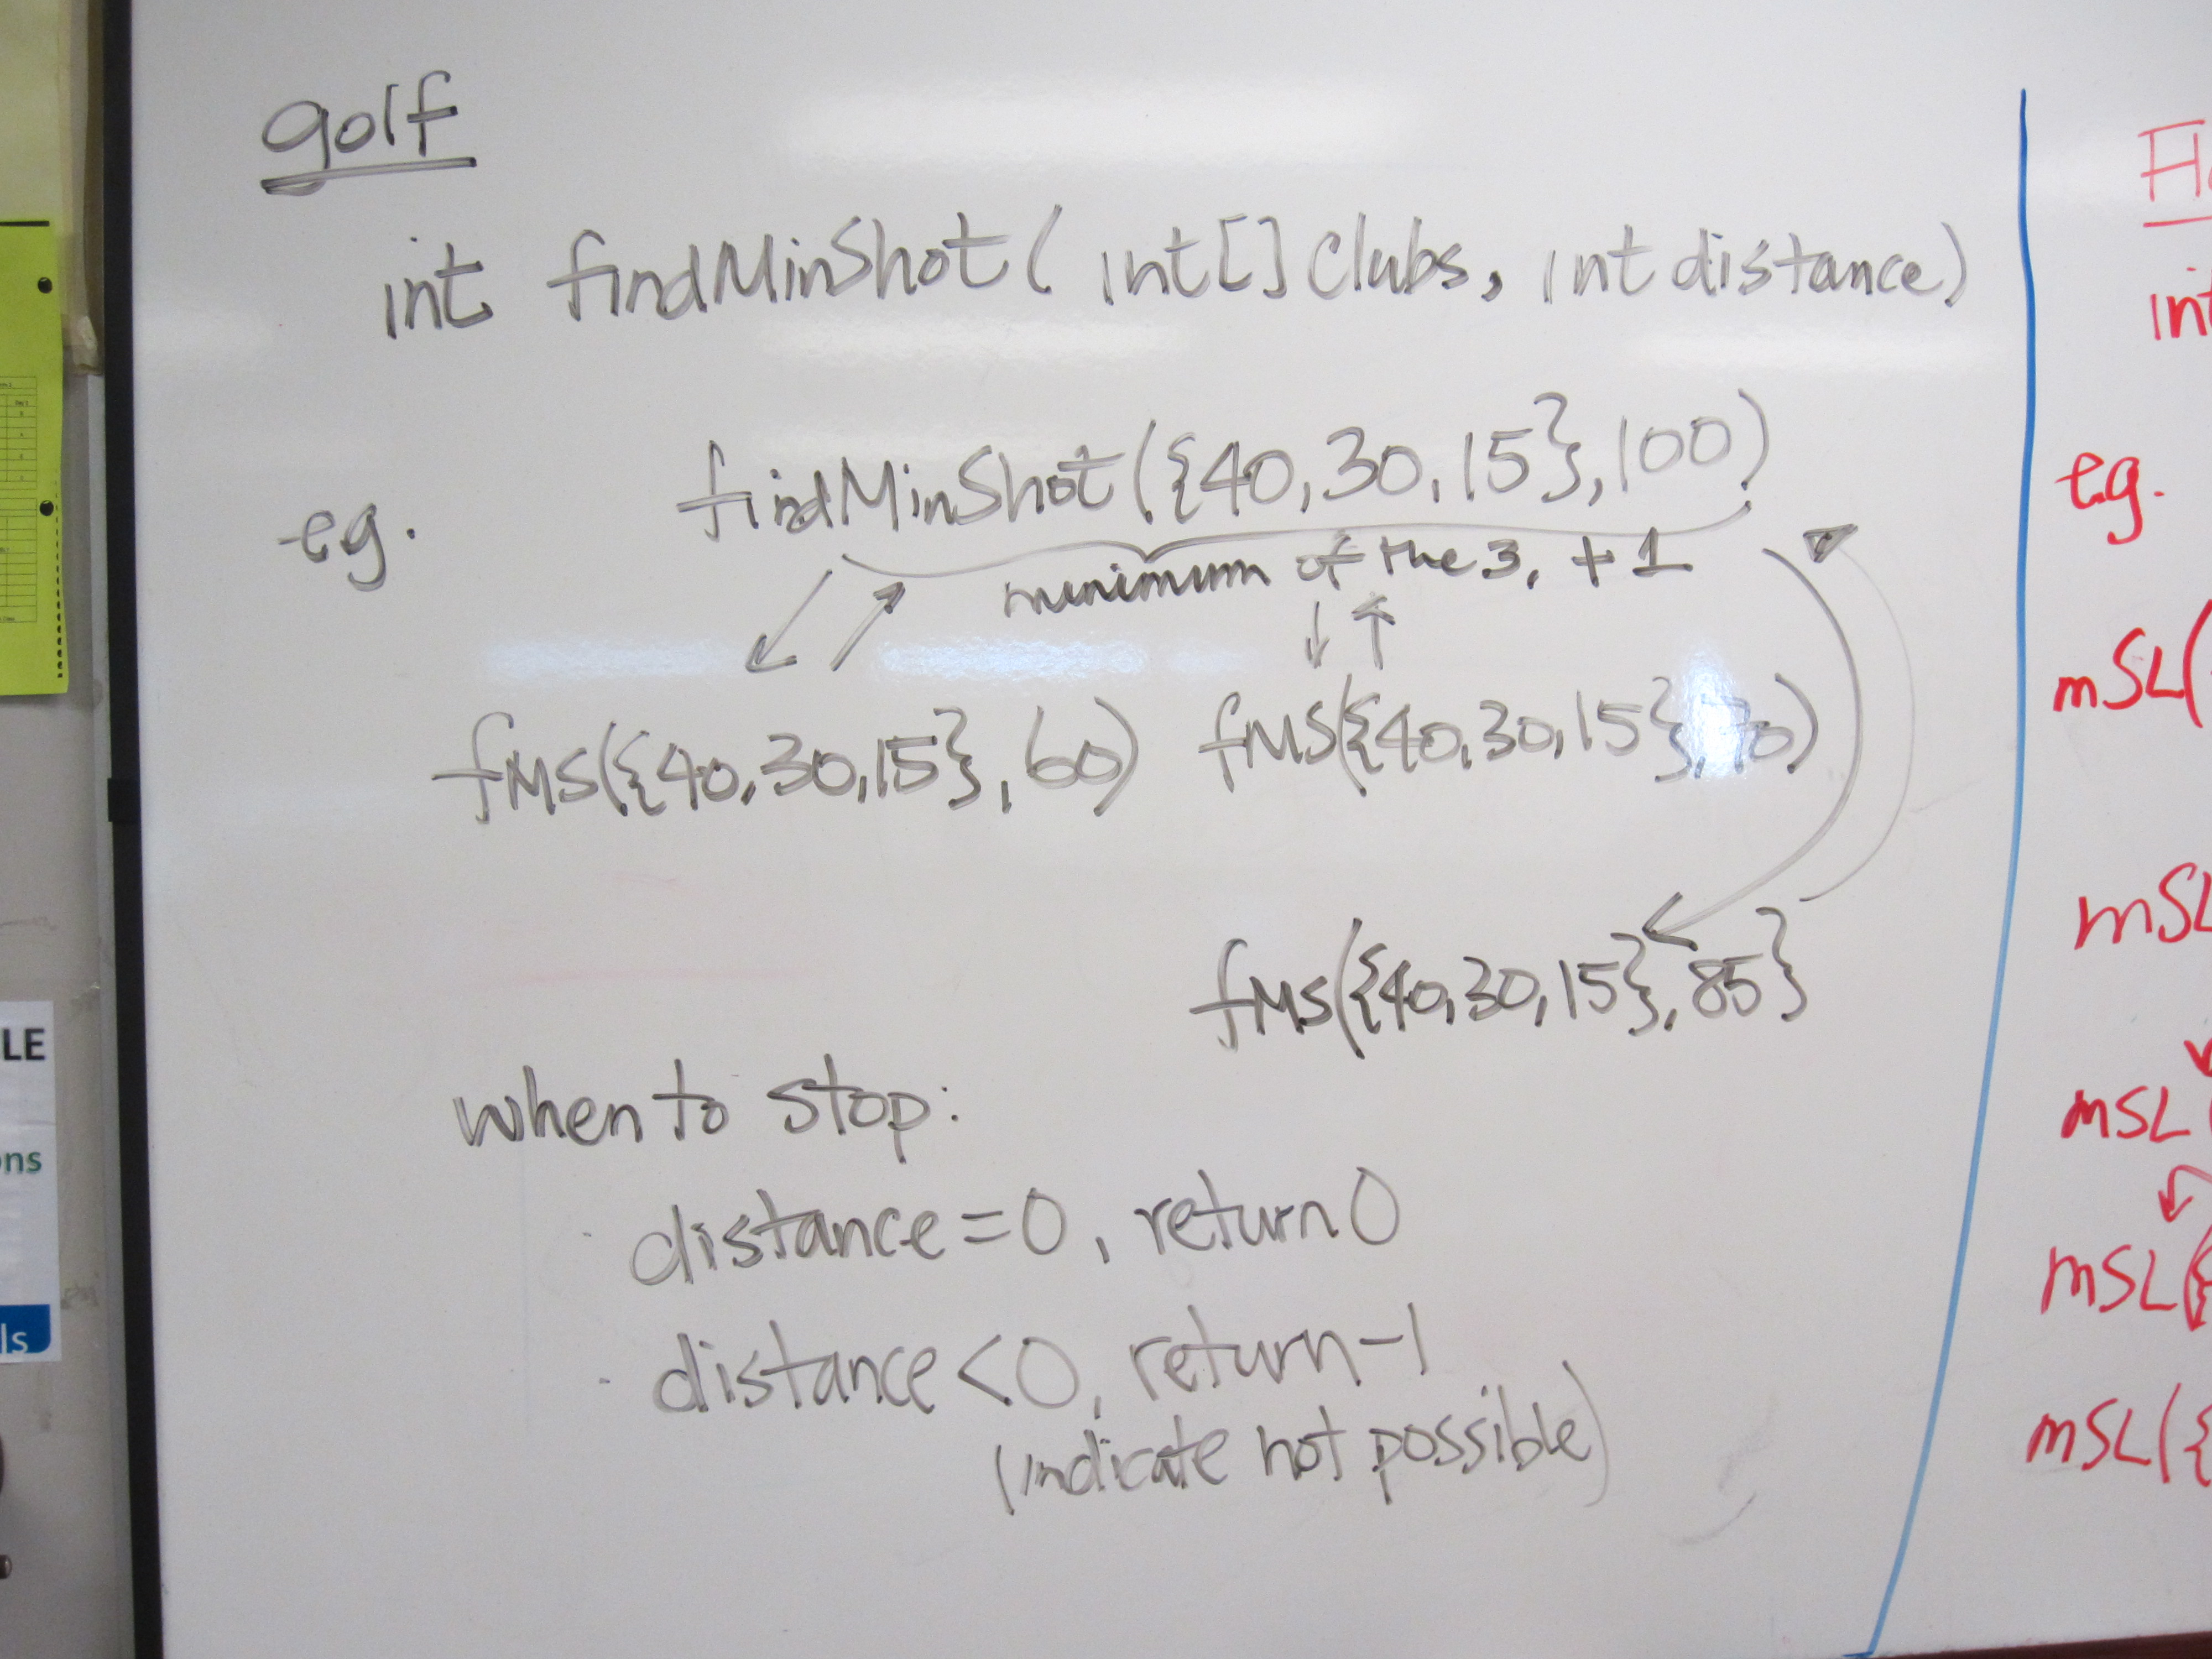 golf
int findMinShot( int[] clubs, int distance)
eg. findMinShot({40,30,15},100)
minimum of the 3, +1
fMS({40,30,15},60) fMS({40,30,15},70)
fMS({40,30,15},85}
when to stop:
· distance=0, return 0
· distance<0, return -1
(indicate not possible)
int
eg.
mSL(
mSL
mSL(
mSL({
mSL({
LE
ons
ls